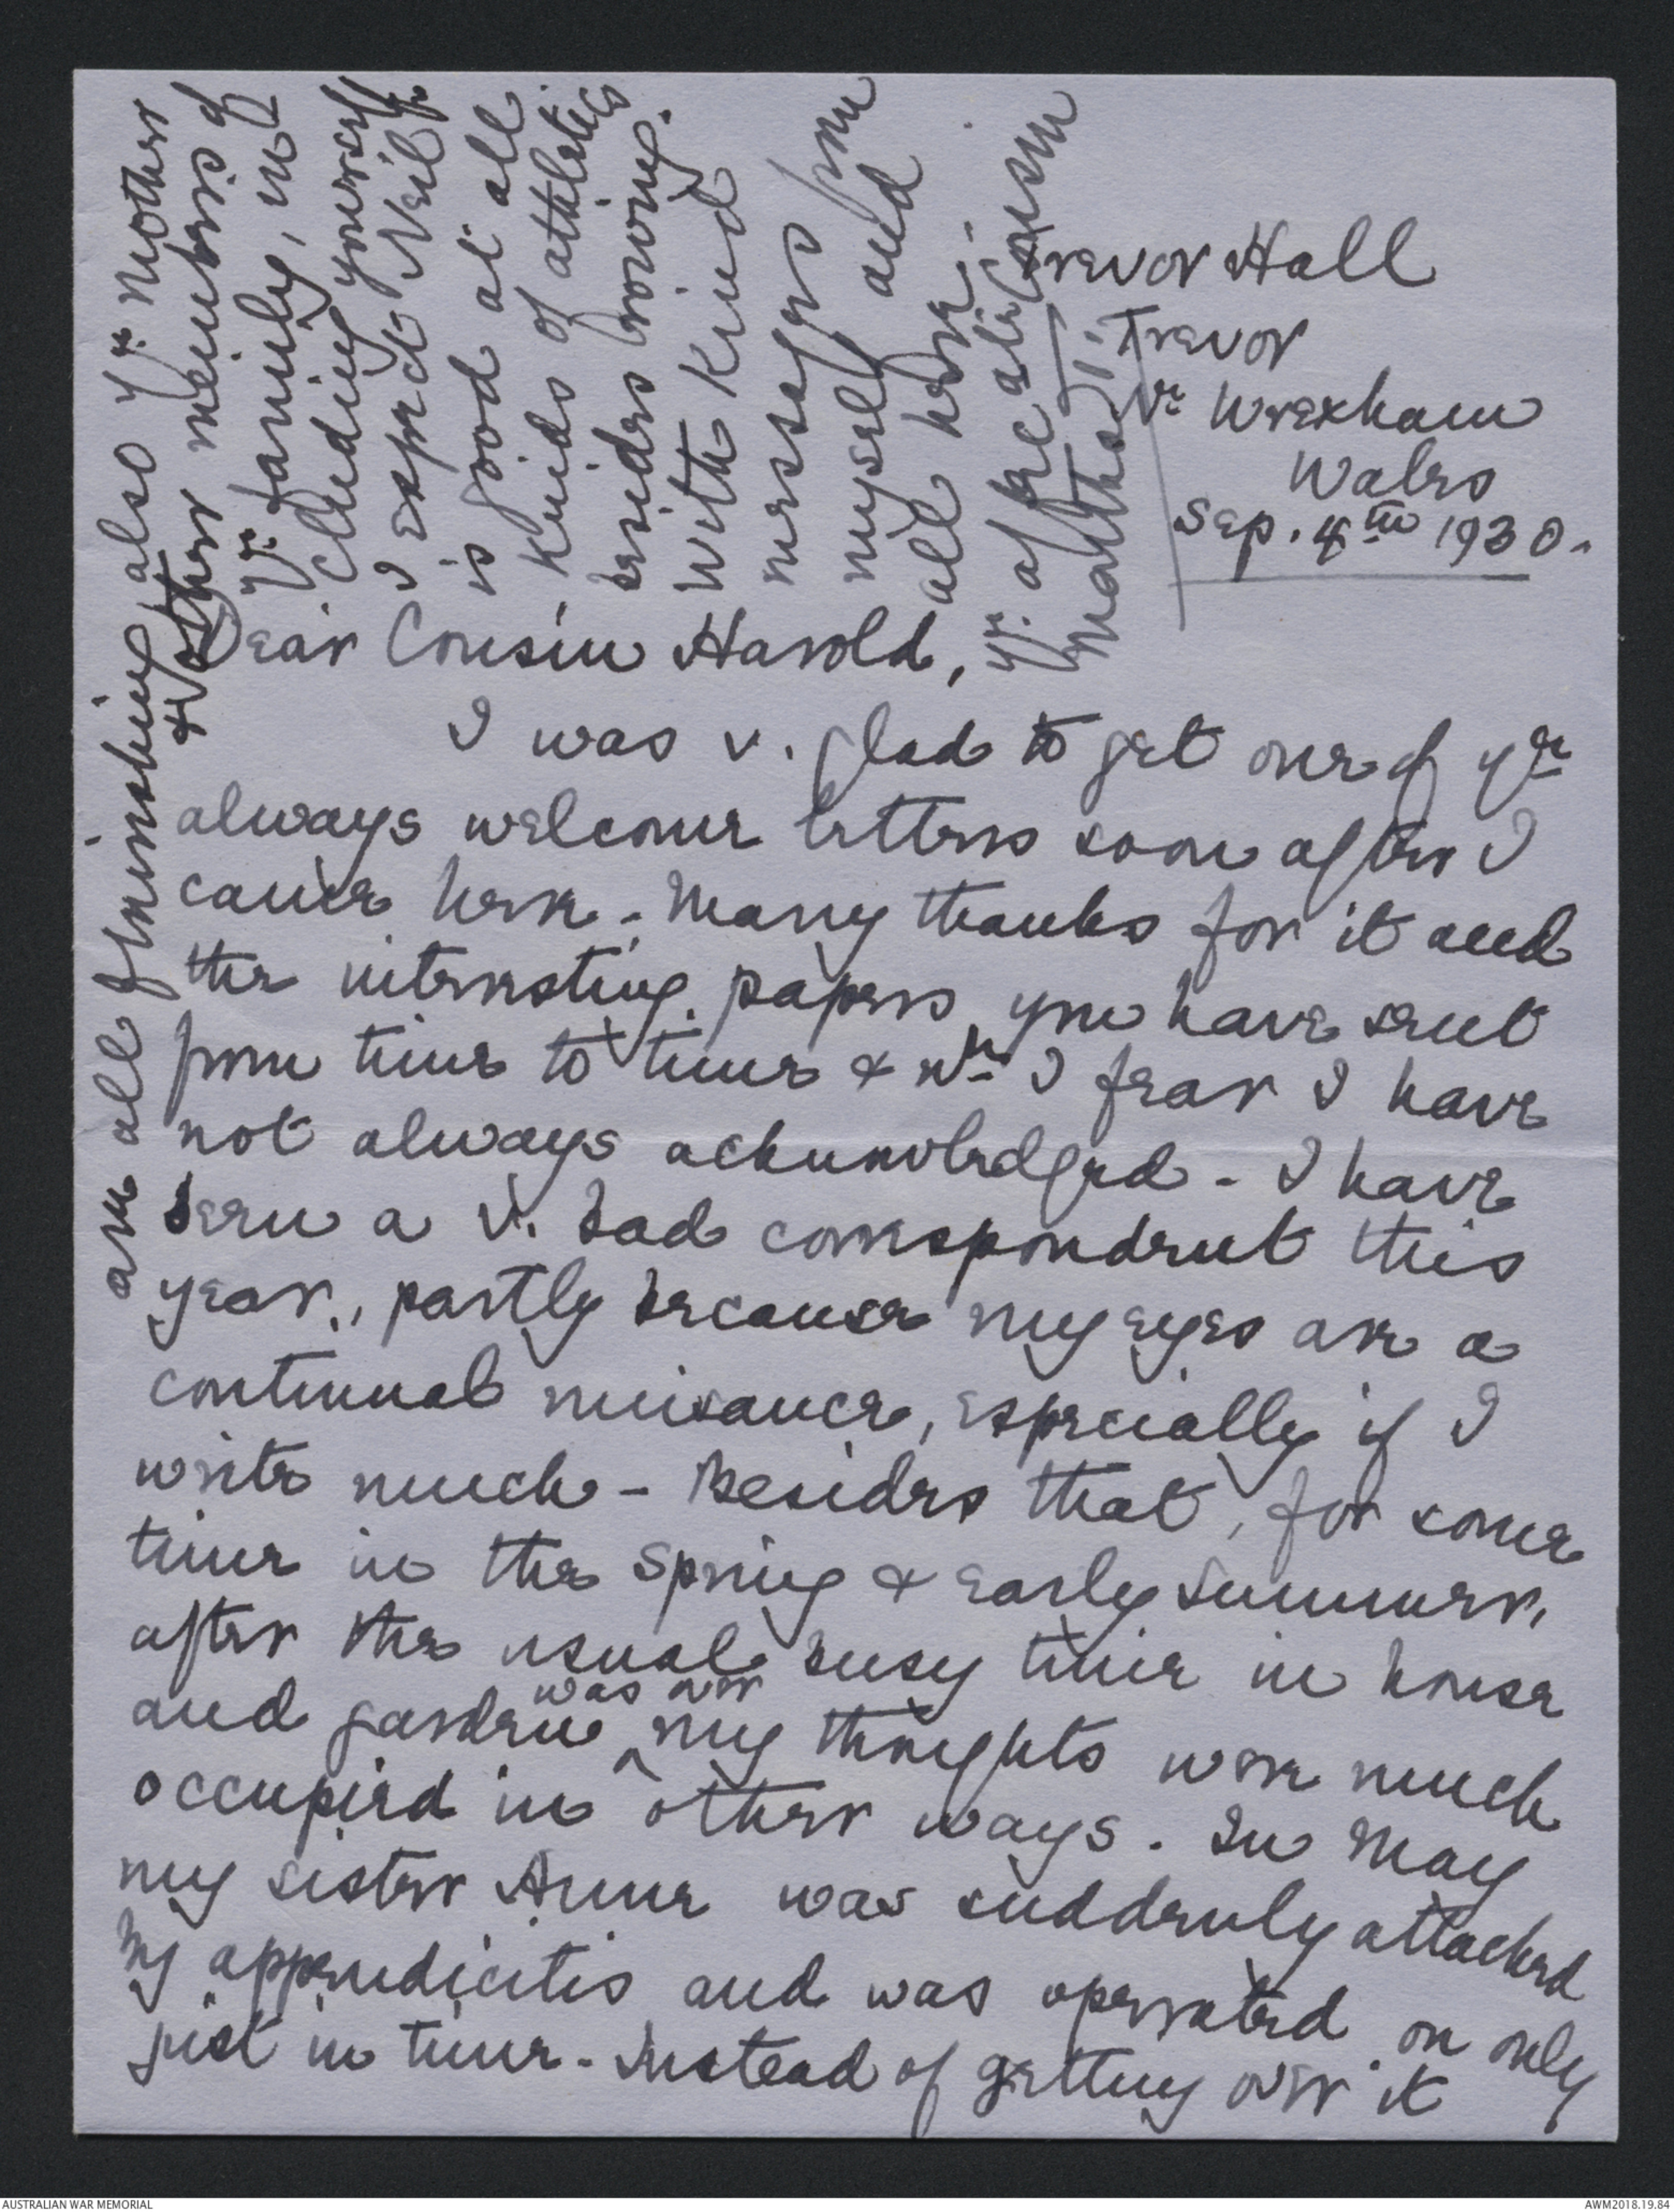 Trevor Hall
Trevor
Nr Wrexham
Wales
Sep. 4th 1930.
Dear Cousin Harold,
I was v. glad to get one of yr
always welcome letters soon after I
came here - Many thanks for it and
the interesting papers you have sent
from time to time & wh I fear I have
not always acknowledged - I have
been a v. bad correspondent this
year, partly because my eyes are a
continual nuisance, especially if I
write much - Besides that, for some
time in the Spring & early Summer,
after the usual busy time in house
and garden was over my thoughts were much
occupied in other ways. In May
my sister Anne was suddenly attacked
by appendicitis and was operated on only
just in time - Instead of getting over it
are all flourishing also yr mother
& other members of
yr family, in
cluding yourself.
I expect Neil
is good at all
kinds of athletics
besides rowing.
With kind
messages from
myself and
all here -
yr. affec
Cousin
Martha
AUSTRALIAN WAR MEMORIAL
AWM2018.19.84